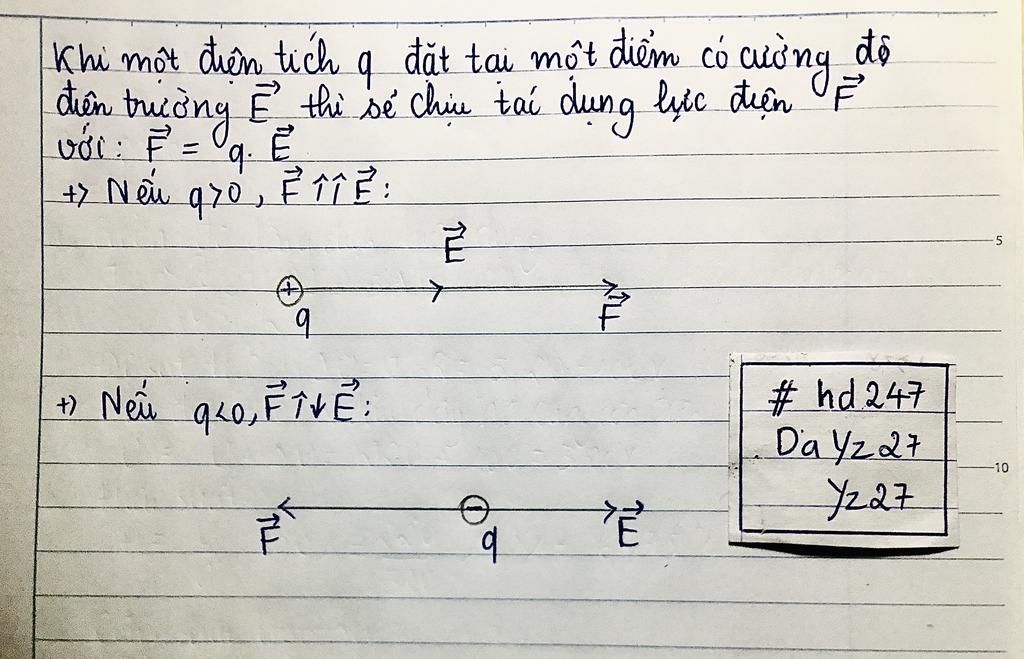 Khi một điện tích q đặt tại một điểm có cường độ
điện trường E⃗ thì sẽ chịu tác dụng lực điện F⃗
với: F⃗ = q. E⃗
+> Nếu q>0, F⃗ ↑↑ E⃗:
E⃗
+
q
F⃗
+> Nếu q<0, F⃗ ↑↓ E⃗:
−
F⃗ q E⃗
# hd 247
Da Yz 27
Yz 27
5
10